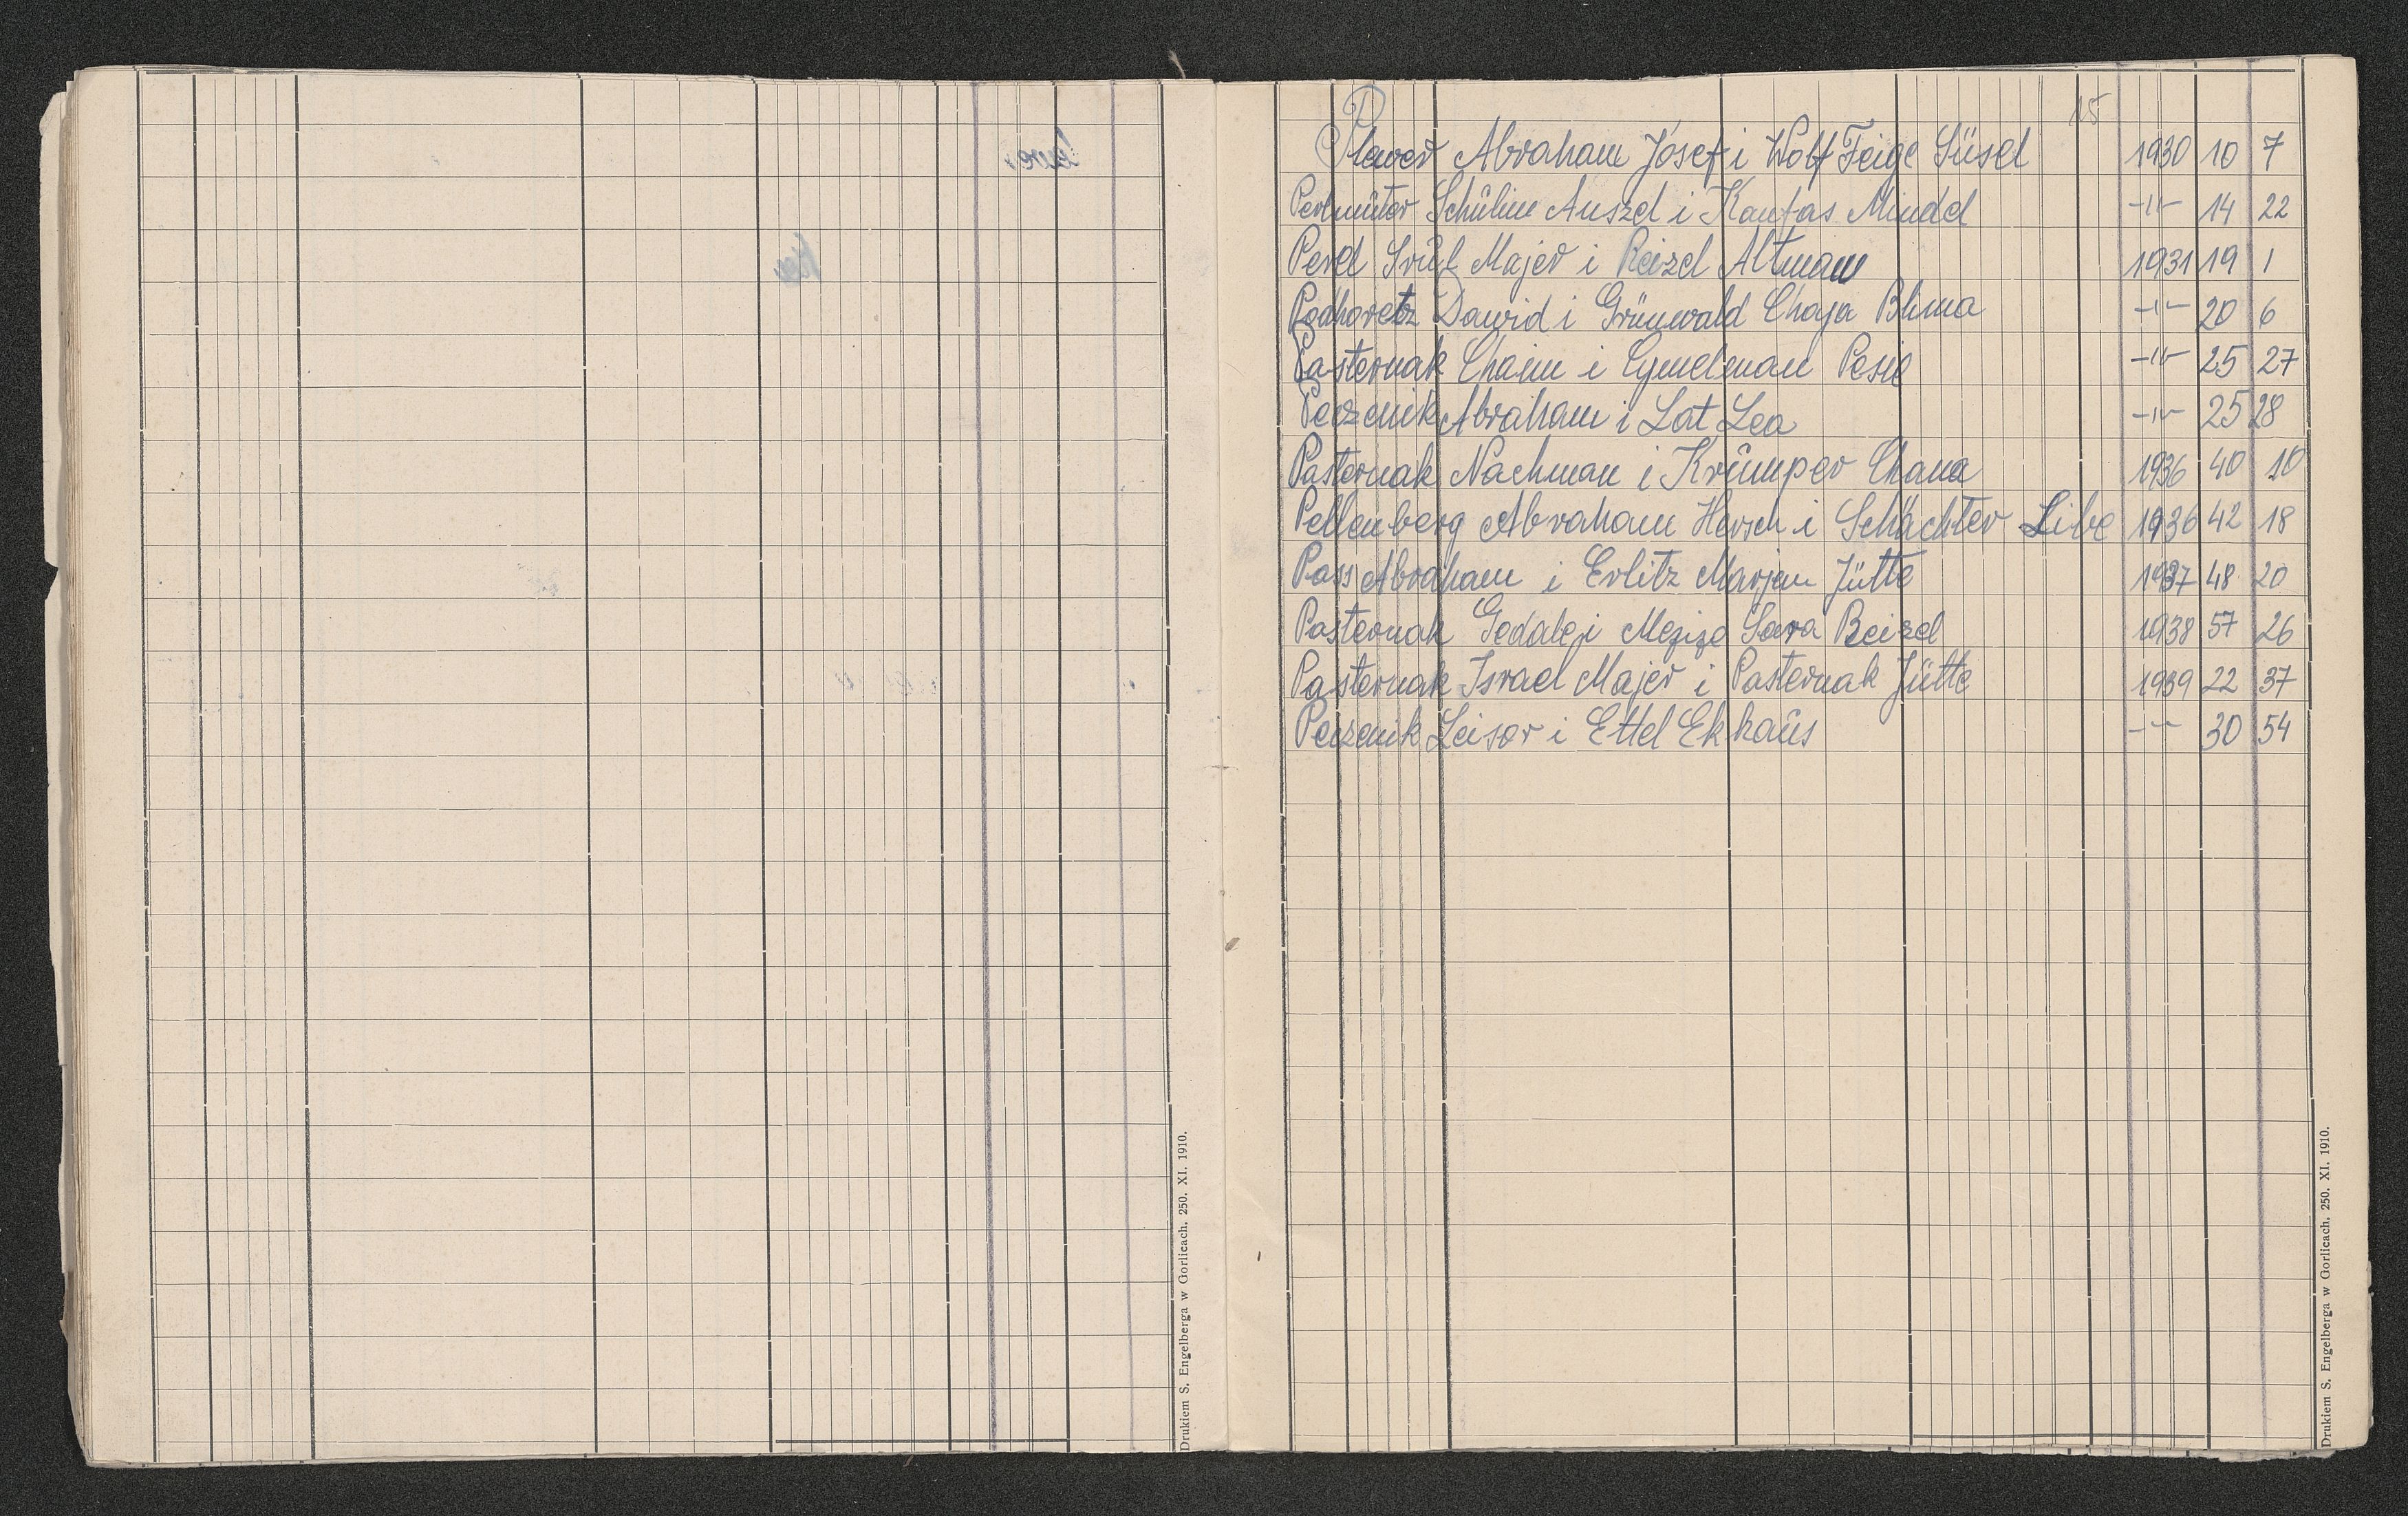 P
15
Plawer Abraham Józef i Wolf Feige Süsel 1930 10 7
Perlmüter Schülim Auszel i Kanfas Mindel -"- 14 22
Perel Srül Majer i Reizel Altman 1931 19 1
Podhoretz Dawid i Grünwald Chaja Blima -"- 20 6
Pasternak Chaim i Cymelman Pesie -"- 25 27
Peczenik Abraham i Lat Lea -"- 25 28
Pasternak Nachman i Krümper Chana 1936 40 10
Pellenberg Abraham Hersch i Schächter Libe 1936 42 18
Pass Abraham i Erlitz Marjem Jütte 1937 48 20
Pasternak Gedale i Sara Beizel 1938 57 26
Pasternak Israel Majer i Pasternak Jütte 1939 22 37
Peczenik Leisor i Ettel Ekhaüs -"- 30 54
Drukiem S. Engelberga w Gorlicach, 250. XI. 1910.
Drukiem S. Engelberga w Gorlicach, 250. XI. 1910.